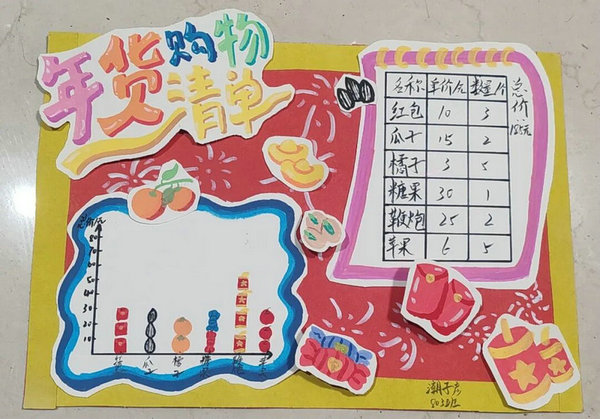 年货购物
清单
名称 单价/元 数量/个
红包 10 3
瓜子 15 2
橘子 3 5
糖果 30 1
鞭炮 25 2
苹果 6 5
总价:185元
总价/元
80
70
60
50
40
30
20
10